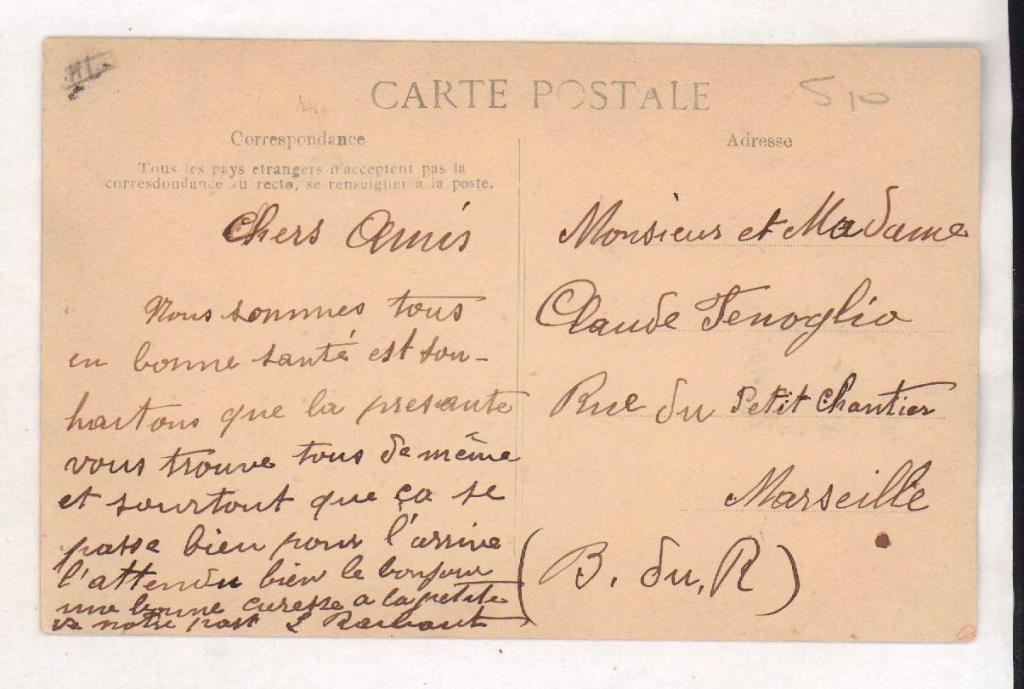 CARTE POSTALE
510
Correspondance
Tous les pays etrangers n'acceptent pas la
corresdondance au recto, se renseigner à la poste.
Chers Amis
Nous sommes tous
en bonne santé est sou-
haitons que la presante
vous trouve tous de même
et sourtout que ça se
passe bien pour l'arrive
l'attendu bien le bonjour
une bonne caresse a la petite
de notre part L
Adresse
Monsieur et Madame
Claude Fenoglio
Rue du Petit Chantier
Marseille
(B. du. R)